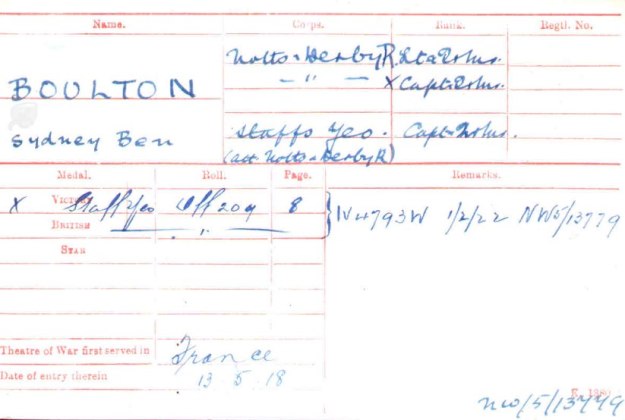 Name. Corps. Rank. Regtl. No.
Notts & Derby R. Lt & Qr Mr.
BOULTON — " — X Capt & Qr Mr.
Sydney Ben Staffs Yeo. Capt & Qr Mr.
(att Notts & Derby R)
Medal. Roll. Page. Remarks.
X Victory Staff Yeo Off 209 8 } IV 4793W 1/2/22 NW5/13779
British — " —
Star
Theatre of War first served in France
Date of entry therein 13.5.18
E. 1380
NW/5/13779